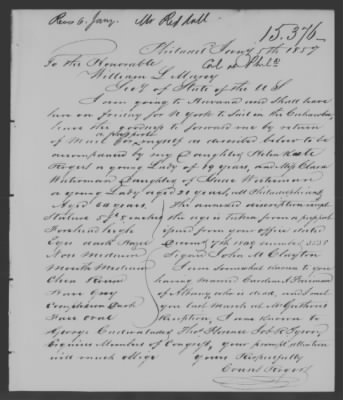 Recd 6 Jany. Mr Reddall
15.376
Philadel Jany 5th 1857
To the Honorable
William L Marcy
Secy of State of the US
I am going to Havana and shall leave
here on Friday for N York to Sail in the
have the goodness to forward me by return
of Mail a passport for myself as described below to be
accompanied by my Daughter Helen Kate
Rogers a young Lady of 19 years, and Miss Clara
Waterman Daughter of Waterman
a young Lady aged 21 years, all Philadelphians
Aged 60 years
Stature 5
Forehead high
Eyes dark
Nose Medium
Mouth Medium
Chin
Hair Gray
Complexion Dark
Face oval
The annexed description except
the age is taken from a passport
issued from your office dated
7th 1849 numbered
Signed John M Clayton
I am somewhat known to you
having married
of Albany who is dead, and met
you last March at
Reception, I am known to
George Cadwalader, Thos Florence Job R Tyson,
Esquires Members of Congress, your prompt attention
will much oblige yours Respectfully
Evans Rogers